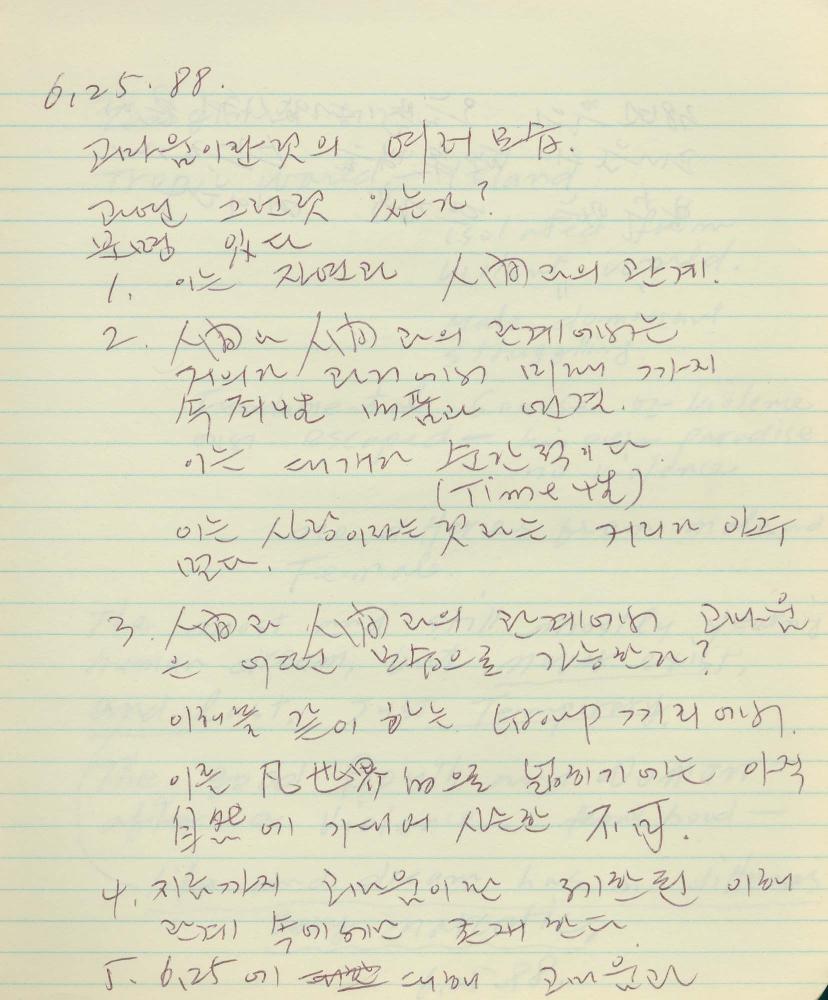 6.25.88.
고마움이란것의 여러 모습.
과연 그런것 있는가?
분명 있다
1. 이는 자연과 人間과의 관계.
2. 人間과 人間과의 관계에서는
거의가 과거에서 미래 까지
속 제품과 연결.
이는 대개가 순간적이다.
(Time性)
이는 사랑이라는 것과는 거리가 아주
멀다.
3. 人間과 人間과의 관계에서 고마움
은 어떠한 모습으로 가능한가?
이해를 같이 하는 Group 끼리에서.
이를 凡世界的으로 넓히기에는 아직
自然에 기대어 사는한 不可.
4. 지금까지 고마움이란 제한된 이해
관계 속에서만 존재 한다.
5. 6.25에 대해 고마움과